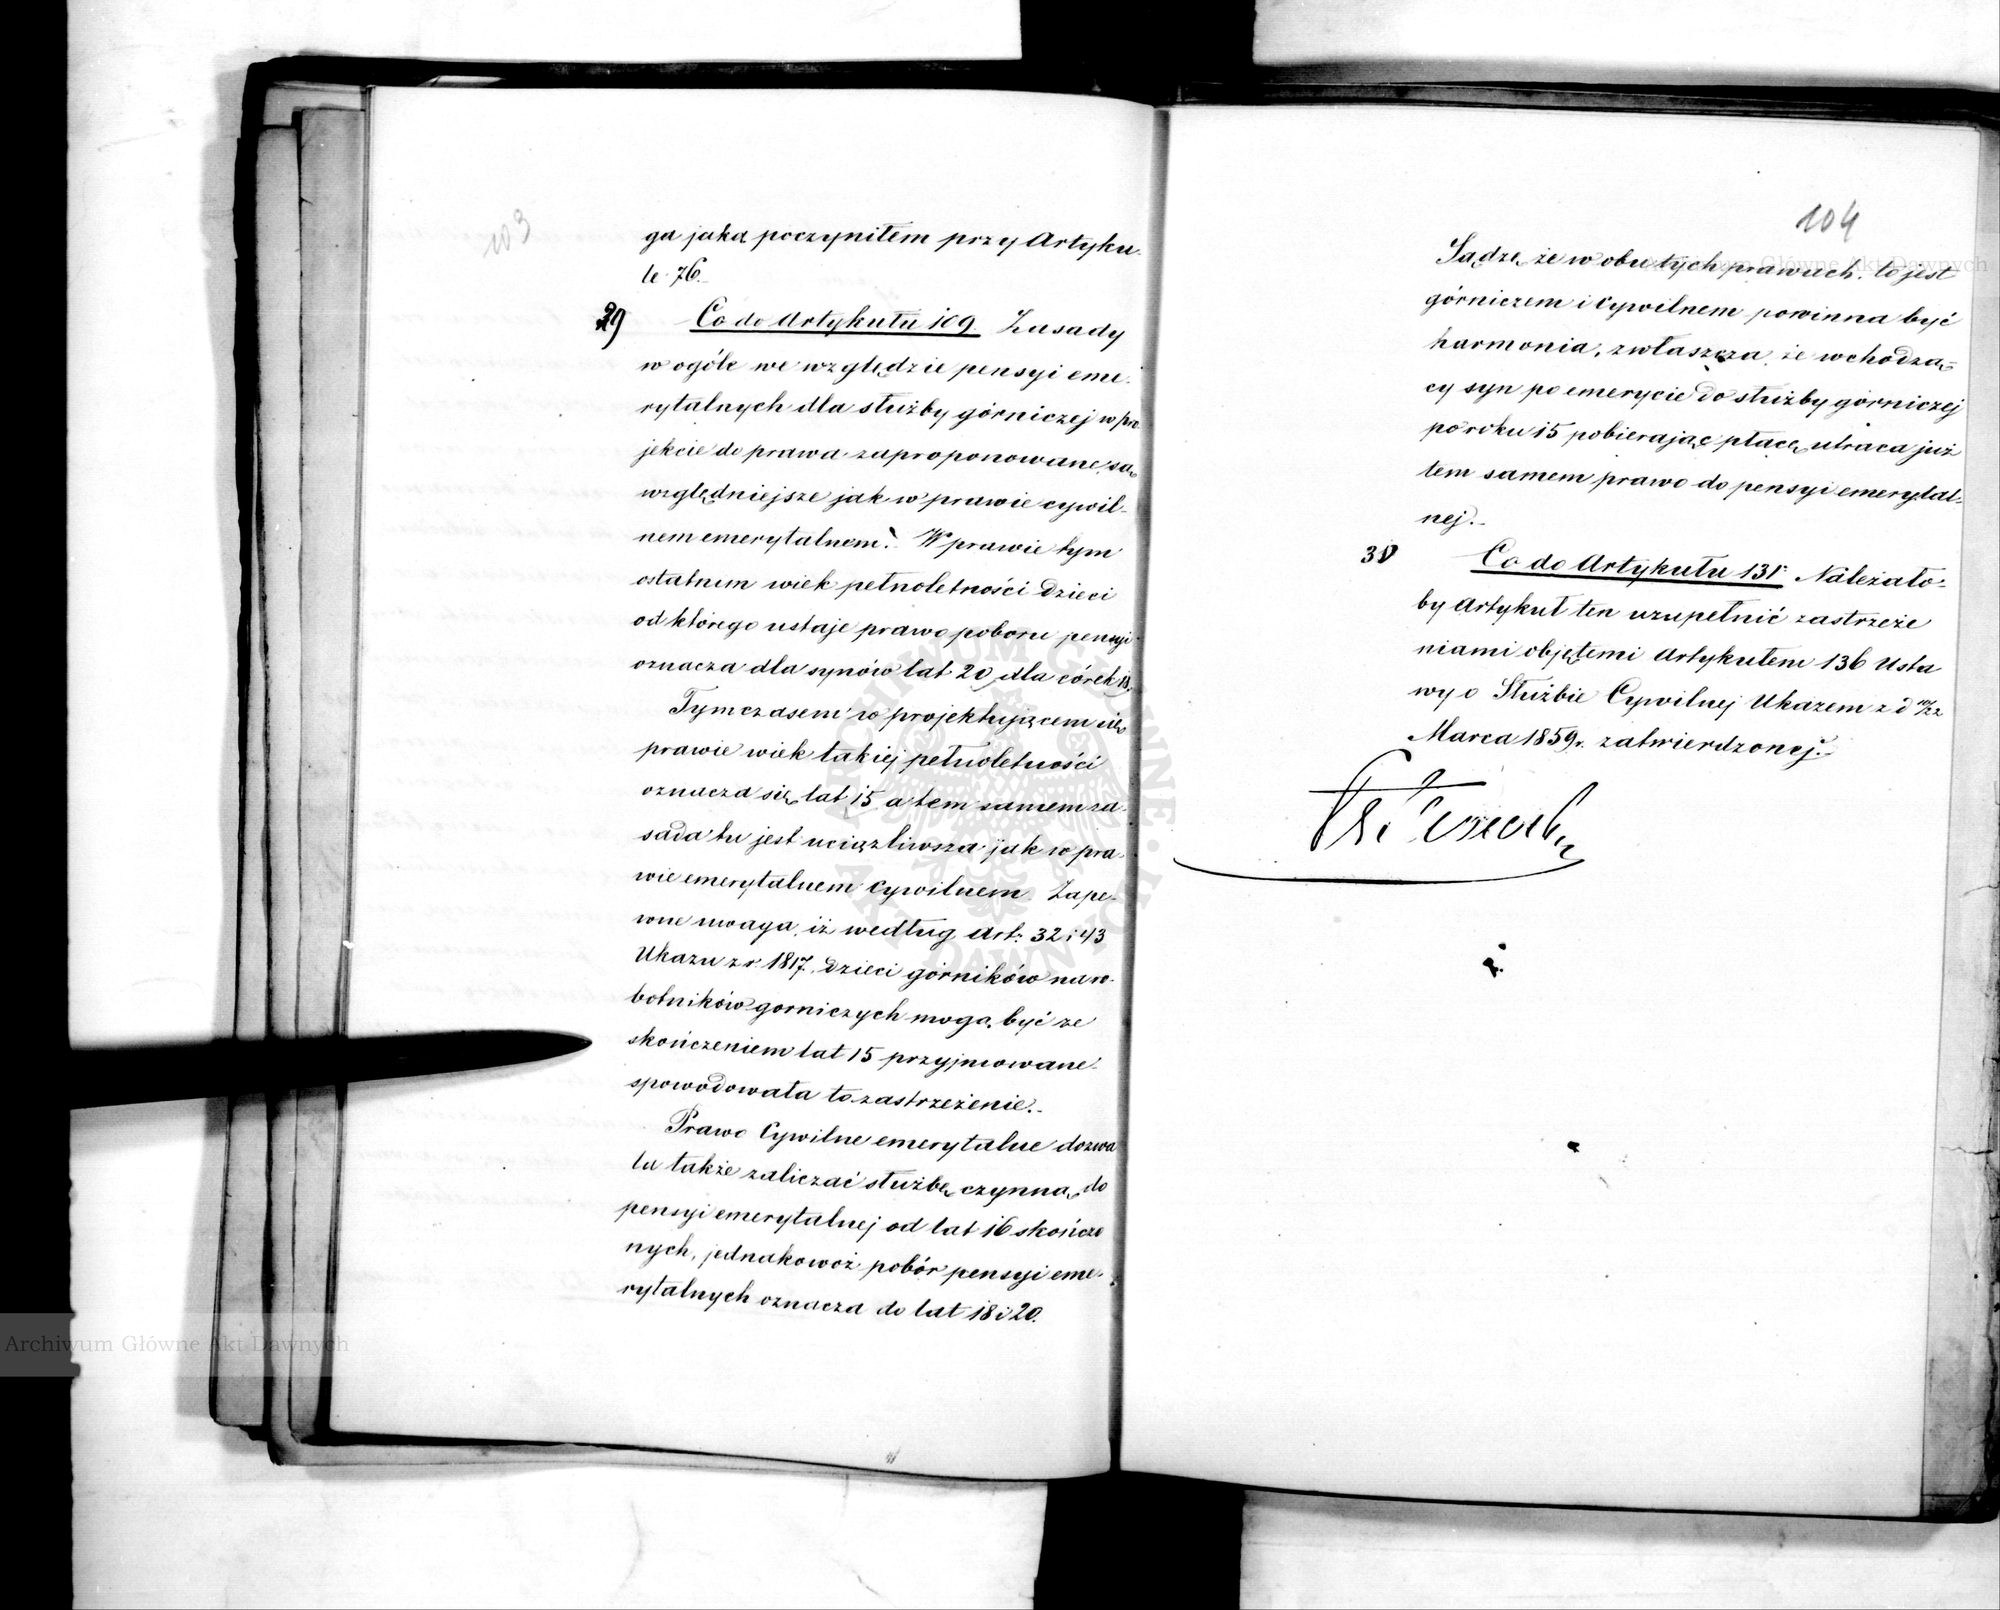 103
ga jaka poczyniłem przy Artyku-
le 76.
29 Co do Artykułu 109. Zasady
w ogóle we względzie pensyi eme-
rytalnych dla służby górniczej w pro-
jekcie do prawa zaproponowane są
względniejsze jak w prawie cywil-
nem emerytalnem. W prawie tym
ostatnim wiek pełnoletności dzieci
od którego ustaje prawo poboru pensyi
oznacza dla synów lat 20, dla córek 18.
Tymczasem w projektującem się
prawie wiek takiej pełnoletności
oznacza się lat 15, a tem samem za-
sada tu jest uciążliwsza jak w pra-
wie emerytalnem cywilnem. Zape-
wne uwaga, iż według Art: 32 i 43
Ukazu z r. 1817, dzieci górników na ro-
botników gorniczych mogą być ze
skończeniem lat 15 przyjmowane
spowodowała to zastrzeżenie.
Prawo Cywilne emerytalne dozwa
la także zaliczać służbę czynną do
pensyi emerytalnej od lat 16 skończo
nych, jednakowoż pobór pensyi eme-
rytalnych oznacza do lat 18 i 20.
104
Sądzę, że w obu tych prawach, to jest
górniczem i cywilnem powinna być
harmonia, zwłaszcza, że wchodzą-
cy syn po emerycie do służby górniczej
po roku 15 pobierając płacę, utraca już
tem samem prawo do pensyi emerytal-
nej.
30 Co do Artykułu 131. Należało-
by Artykuł ten uzupełnić zastrzeże
niami objętemi Artykułem 136 Usta
wy o Służbie Cywilnej Ukazem z d 10/22
Marca 1859 r. zatwierdzonej.
Archiwum Główne Akt Dawnych
Archiwum Główne Akt Dawnych
ARCHIWUM GŁÓWNE AKT DAWNYCH